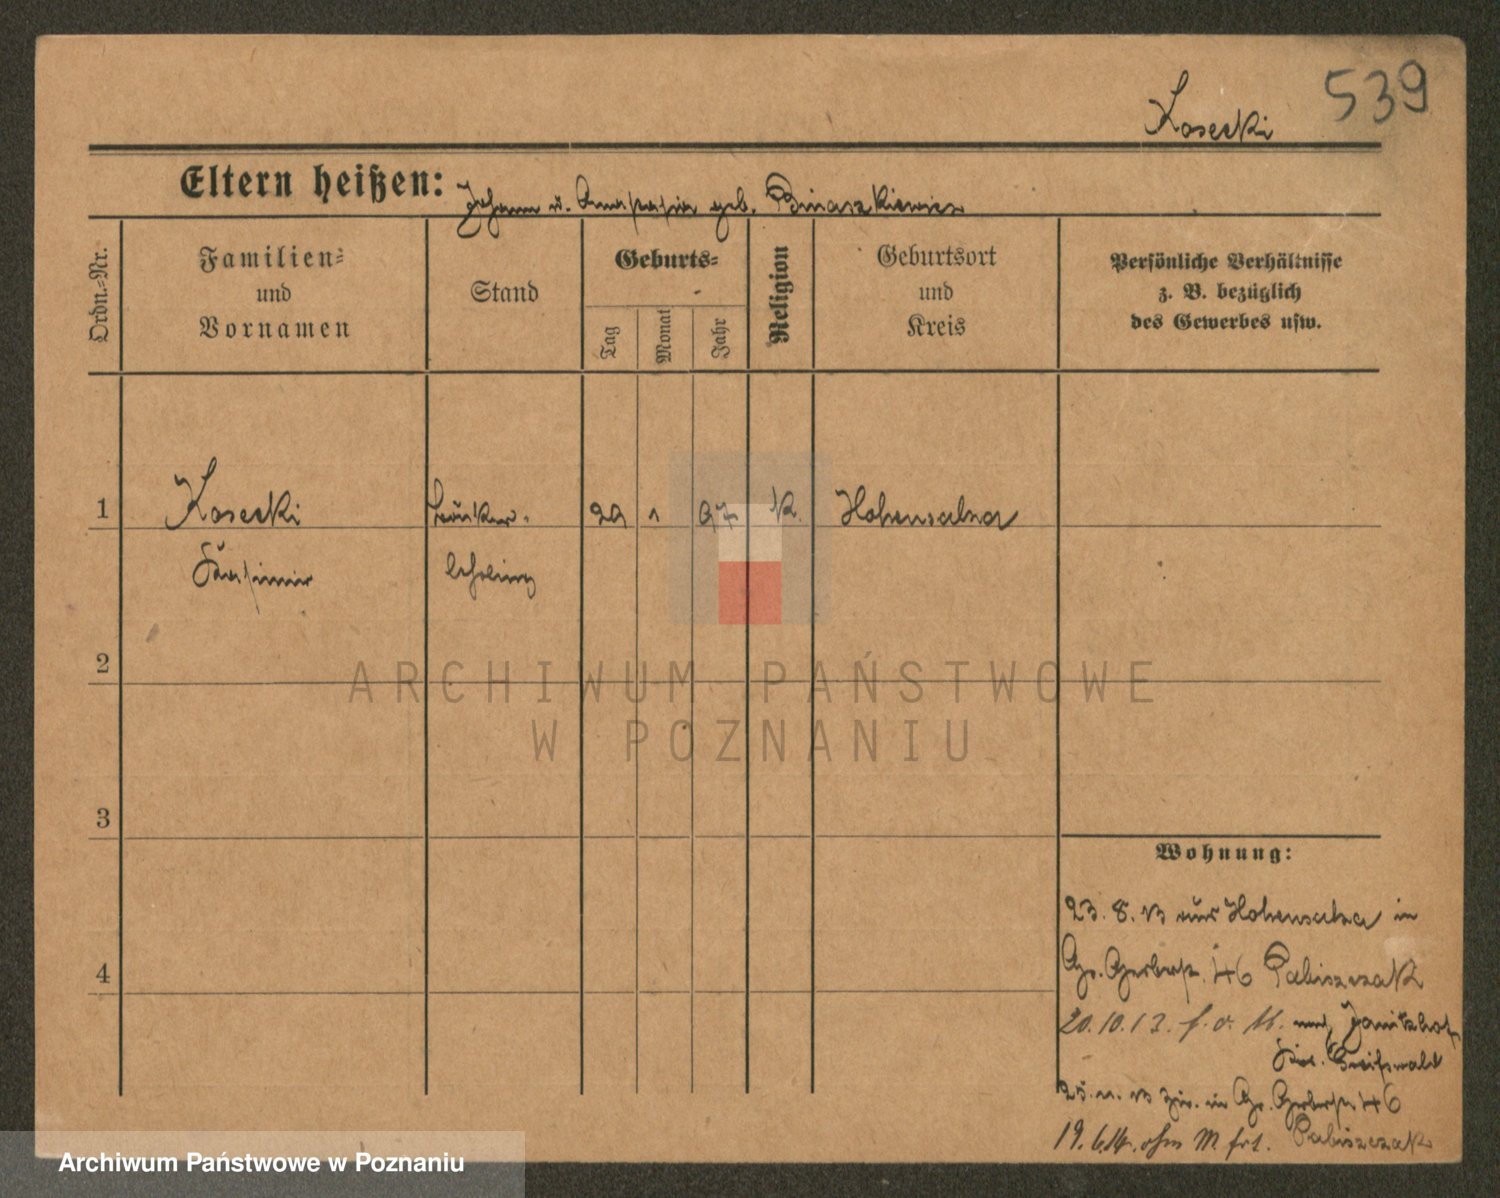 539
Kosecki
Eltern heißen: Johann u. Anastasia geb. Binaszkiewicz
Ordn.-Nr.
Familien- und Vornamen
Stand
Geburts-
Tag
Monat
Jahr
Religion
Geburtsort und Kreis
Persönliche Verhältnisse
z. B. bezüglich
des Gewerbes usw.
1 Kosecki 29 1 97 K. Hohensalza
Kasimir lehrling
2
3
4
ARCHIWUM PAŃSTWOWE
W POZNANIU
Wohnung:
23. 8. 13 aus Hohensalza in
Gr. Gerberst. 46 Pabiszczak
20.10.13. f. o. M. nach
Kr. Greifswald
25. 11. 13 zur. in Gr. Gerberstr 46
19. 6.14. ohm M. frt. Pabiszczak
Archiwum Państwowe w Poznaniu